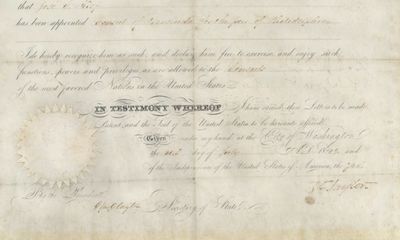 that José
has been appointed Consul of Venezuela for the Port of Philadelphia
I do hereby recognize him as such, and declare him free to exercise and enjoy such
functions, powers and privileges as are allowed to the Consuls
of the most favored Nations in the United States.
IN TESTIMONY WHEREOF, I have caused these Letters to be made
Patent, and the Seal of the United States to be hereunto affixed.
Given under my hand, at the City of Washington
the day of July A.D. and
of the Independence of the United States of America, the
Z. Taylor
By the President
Clayton Secretary of State